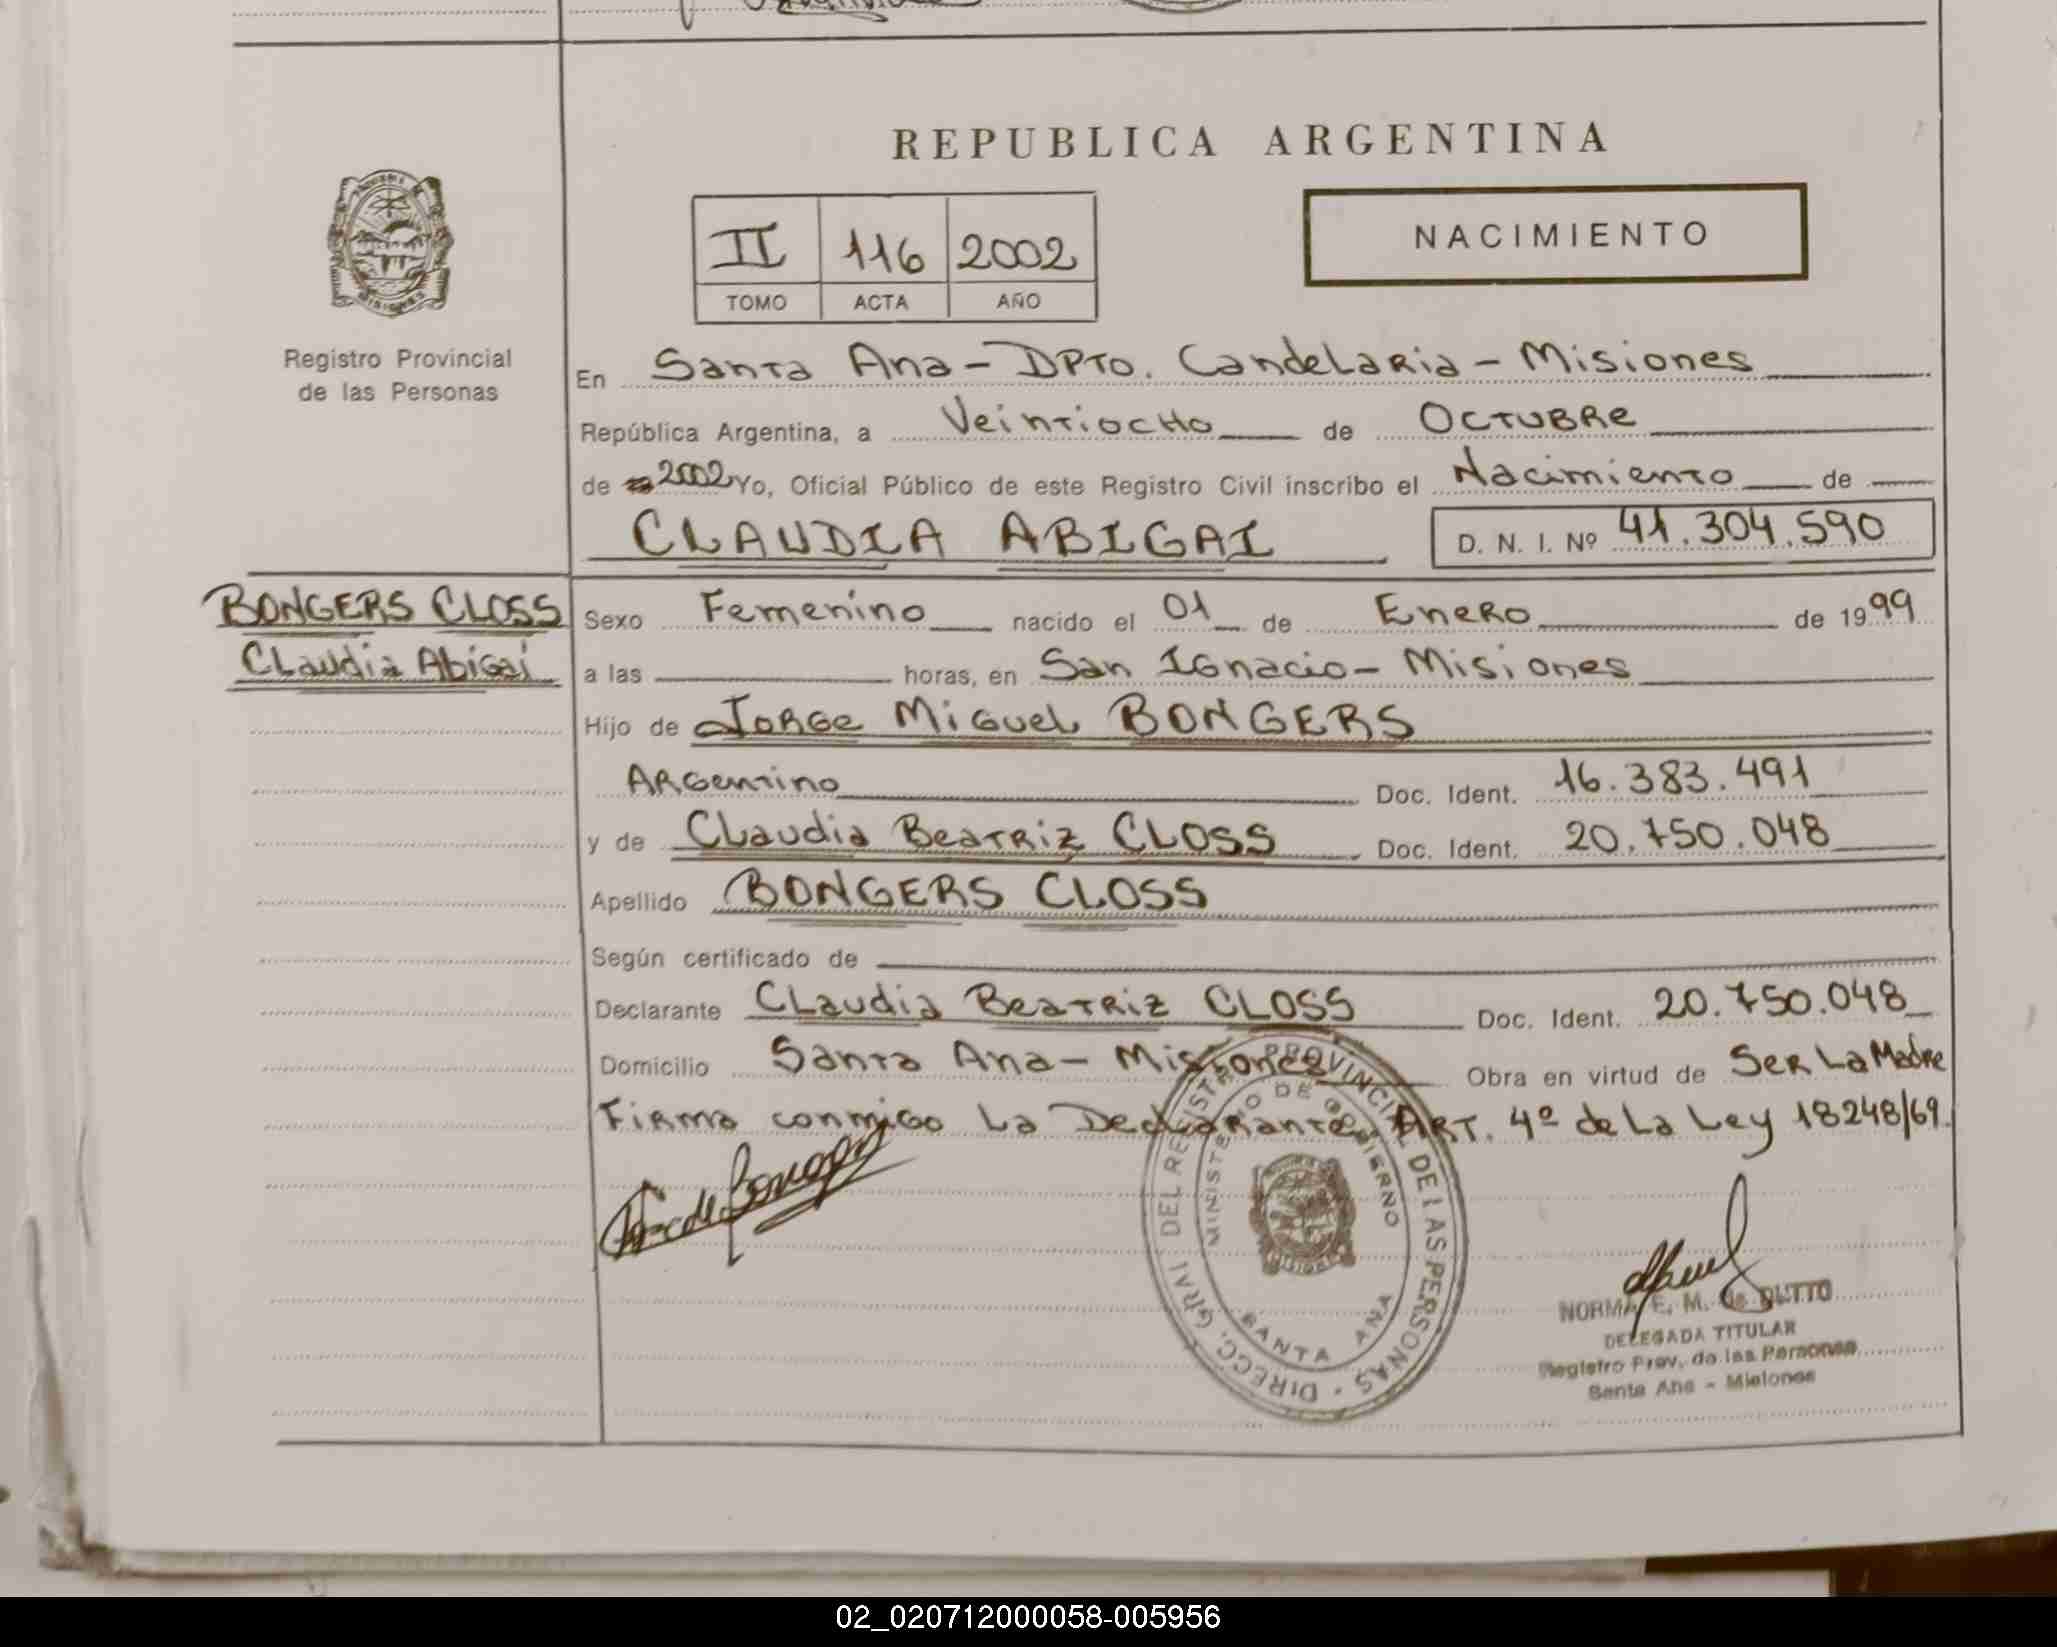 REPUBLICA ARGENTINA
II 116 2002
TOMO ACTA AÑO
NACIMIENTO
Registro Provincial
de las Personas
En Santa Ana - DPTO. Candelaria - Misiones
República Argentina, a Veintiocho de Octubre
de 2002 Yo, Oficial Público de este Registro Civil inscribo el Nacimiento de
CLAUDIA ABIGAI D. N. I. Nº 41.304.590
BONGERS CLOSS
Claudia Abigaí
Sexo Femenino nacido el 01 de Enero de 1999
a las horas, en San Ignacio - Misiones
Hijo de Jorge Miguel BONGERS
Argentino Doc. Ident. 16.383.491
y de Claudia Beatriz CLOSS Doc. Ident. 20.750.048
Apellido BONGERS CLOSS
Según certificado de
Declarante Claudia Beatriz CLOSS Doc. Ident. 20.750.048
Domicilio Santa Ana - Misiones Obra en virtud de Ser La Madre
Firma conmigo La Declarante. ART. 4º de La Ley 18248/69.
DIRECC. GRAL. DEL REGISTRO PROVINCIAL DE LAS PERSONAS
MINISTERIO DE GOBIERNO
MISIONES
SANTA ANA
NORMA E. M. de DUTTO
DELEGADA TITULAR
Registro Prov. de las Personas
Santa Ana - Misiones
02_020712000058-005956